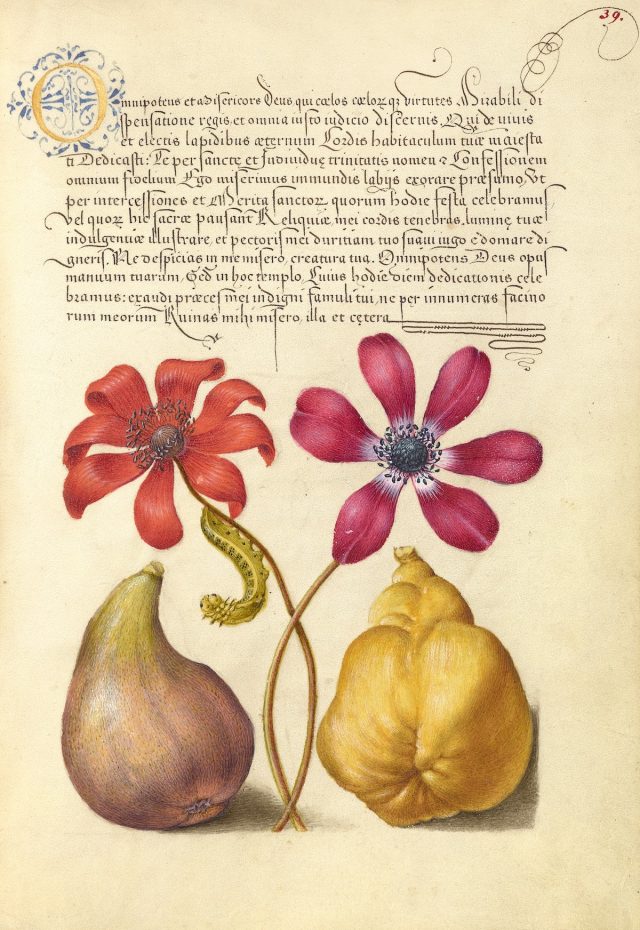 39.
Omnipotens et Misericors Deus qui cœlos cœlorz qz virtutes, Mirabili di
spensatione regis, et omnia iusto iudicio discernis, Qui de viuis
et electis lapidibus æternum Cordis habitaculum tuæ maiesta
ti Dedicasti: Te per sanctæ et Indiuiduę trinitatis nomen & Confessionem
omnium fidelium Ego miserimus immundis labijs exorare præsumo, Vt
per intercessiones et Merita sanctorz quorum hodie festa celebramus
vel quorz hic sacræ pausant Reliquiæ mei cordis tenebras, luminę tuæ
indulgentiæ illustrare, et pectoris mei duritiam tuo suaui iugo edomare di
gneris. Ne despicias in me misero, creatura tua. Omnipotens Deus opus
manuum tuarum, Sed in hoc templo, Cuius hodie diem dedicationis cele
bramus: exaudi præces mei indigni famuli tui, ne per innumeras facino
rum meorum Ruinas mihi misero, illa et cętera